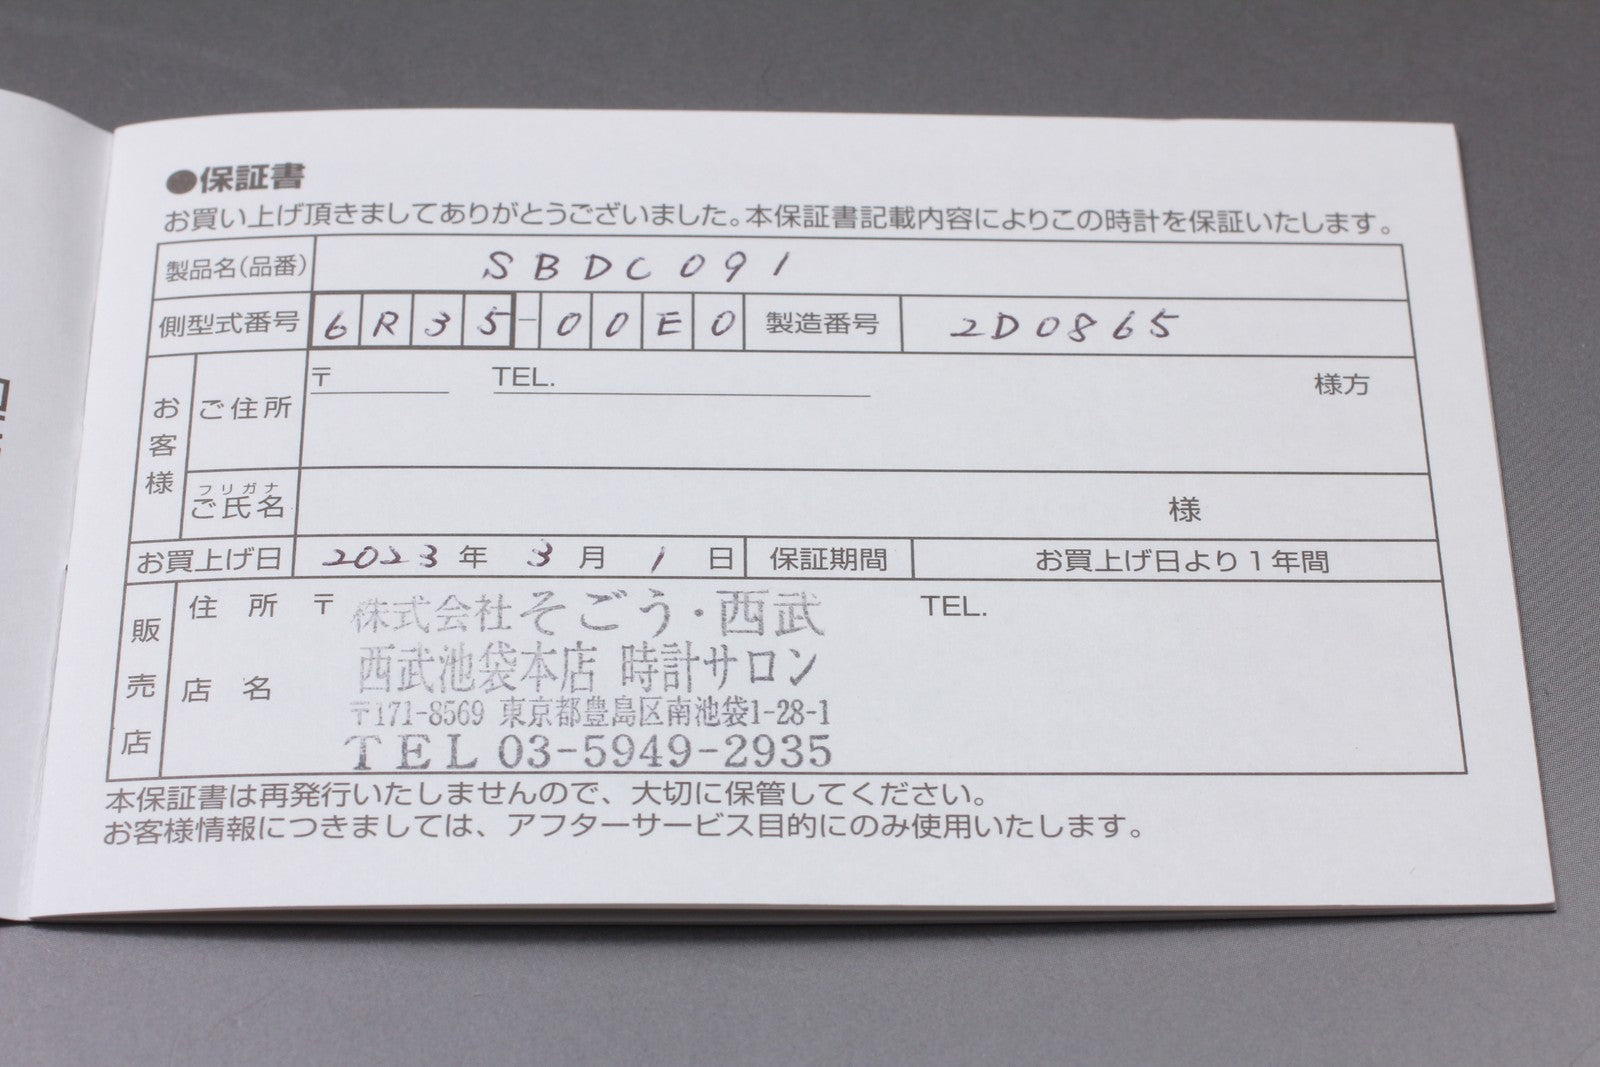 ●保証書
お買い上げ頂きましてありがとうございました。本保証書記載内容によりこの時計を保証いたします。
製品名(品番) SBDC091
側型式番号 6R35-00E0 製造番号 2D0865
お客様 ご住所 〒 TEL. 様方
フリガナ
ご氏名 様
お買上げ日 2023年 3月 1日 保証期間 お買上げ日より1年間
販売店 住所 〒 株式会社そごう・西武 TEL.
店名 西武池袋本店 時計サロン
〒171-8569 東京都豊島区南池袋1-28-1
TEL 03-5949-2935
本保証書は再発行いたしませんので、大切に保管してください。
お客様情報につきましては、アフターサービス目的にのみ使用いたします。